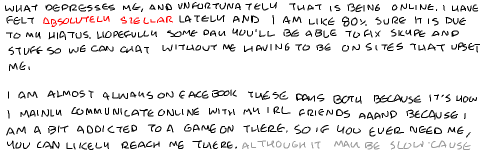 WHAT DEPRESSES ME, AND UNFORTUNATELY THAT IS BEING ONLINE. I HAVE
FELT ABSOLUTELY STELLAR LATELY AND I AM LIKE 80% SURE IT IS DUE
TO MY HIATUS. HOPEFULLY SOME DAY YOU'LL BE ABLE TO FIX SKYPE AND
STUFF SO WE CAN CHAT WITHOUT ME HAVING TO BE ON SITES THAT UPSET
ME.
I AM ALMOST ALWAYS ON FACEBOOK THESE DAYS BOTH BECAUSE IT'S HOW
I MAINLY COMMUNICATE ONLINE WITH MY IRL FRIENDS AAAND BECAUSE I
AM A BIT ADDICTED TO A GAME ON THERE. SO IF YOU EVER NEED ME,
YOU CAN LIKELY REACH ME THERE. ALTHOUGH IT MAY BE SLOW 'CAUSE